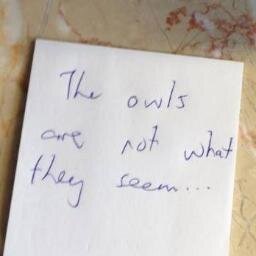 The owls
are not what
they seem...